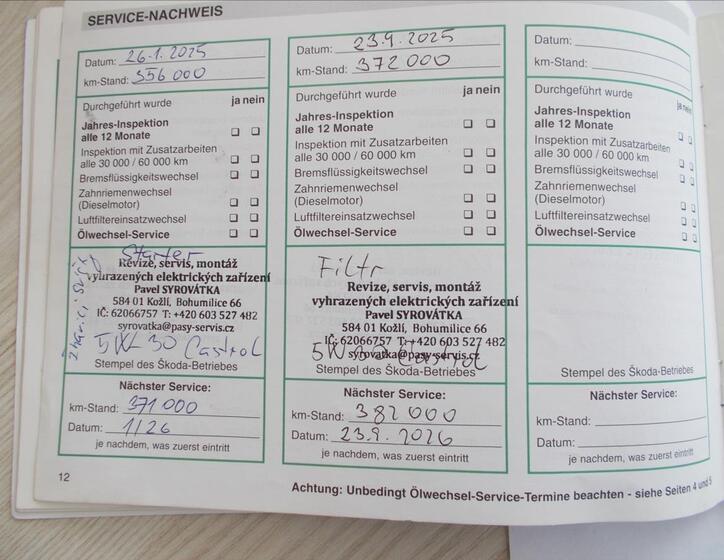 SERVICE-NACHWEIS
Datum: 26.1.2025
km-Stand: 356 000
Durchgeführt wurde ja nein
Jahres-Inspektion
alle 12 Monate
Inspektion mit Zusatzarbeiten
alle 30 000 / 60 000 km
Bremsflüssigkeitswechsel
Zahnriemenwechsel
(Dieselmotor)
Luftfiltereinsatzwechsel
Ölwechsel-Service
Starter
Revize, servis, montáž
vyhrazených elektrických zařízení
Pavel SYROVÁTKA
584 01 Kožlí, Bohumilice 66
IČ: 62066757 T: +420 603 527 482
syrovatka@pasy-servis.cz
5W-30 Castrol
Stempel des Škoda-Betriebes
Nächster Service:
km-Stand: 371 000
Datum: 1/26
je nachdem, was zuerst eintritt
12
Datum: 23.9.2025
km-Stand: 372 000
Durchgeführt wurde ja nein
Jahres-Inspektion
alle 12 Monate
Inspektion mit Zusatzarbeiten
alle 30 000 / 60 000 km
Bremsflüssigkeitswechsel
Zahnriemenwechsel
(Dieselmotor)
Luftfiltereinsatzwechsel
Ölwechsel-Service
Filtr
Revize, servis, montáž
vyhrazených elektrických zařízení
Pavel SYROVÁTKA
584 01 Kožlí, Bohumilice 66
IČ: 62066757 T: +420 603 527 482
syrovatka@pasy-servis.cz
Stempel des Škoda-Betriebes
Nächster Service:
km-Stand: 382 000
Datum: 23.9.2026
je nachdem, was zuerst eintritt
Datum:
km-Stand:
Durchgeführt wurde ja nein
Jahres-Inspektion
alle 12 Monate
Inspektion mit Zusatzarbeiten
alle 30 000 / 60 000 km
Bremsflüssigkeitswechsel
Zahnriemenwechsel
(Dieselmotor)
Luftfiltereinsatzwechsel
Ölwechsel-Service
Stempel des Škoda-Betriebes
Nächster Service:
km-Stand:
Datum:
je nachdem, was zuerst eintritt
Achtung: Unbedingt Ölwechsel-Service-Termine beachten - siehe Seiten 4 und 5